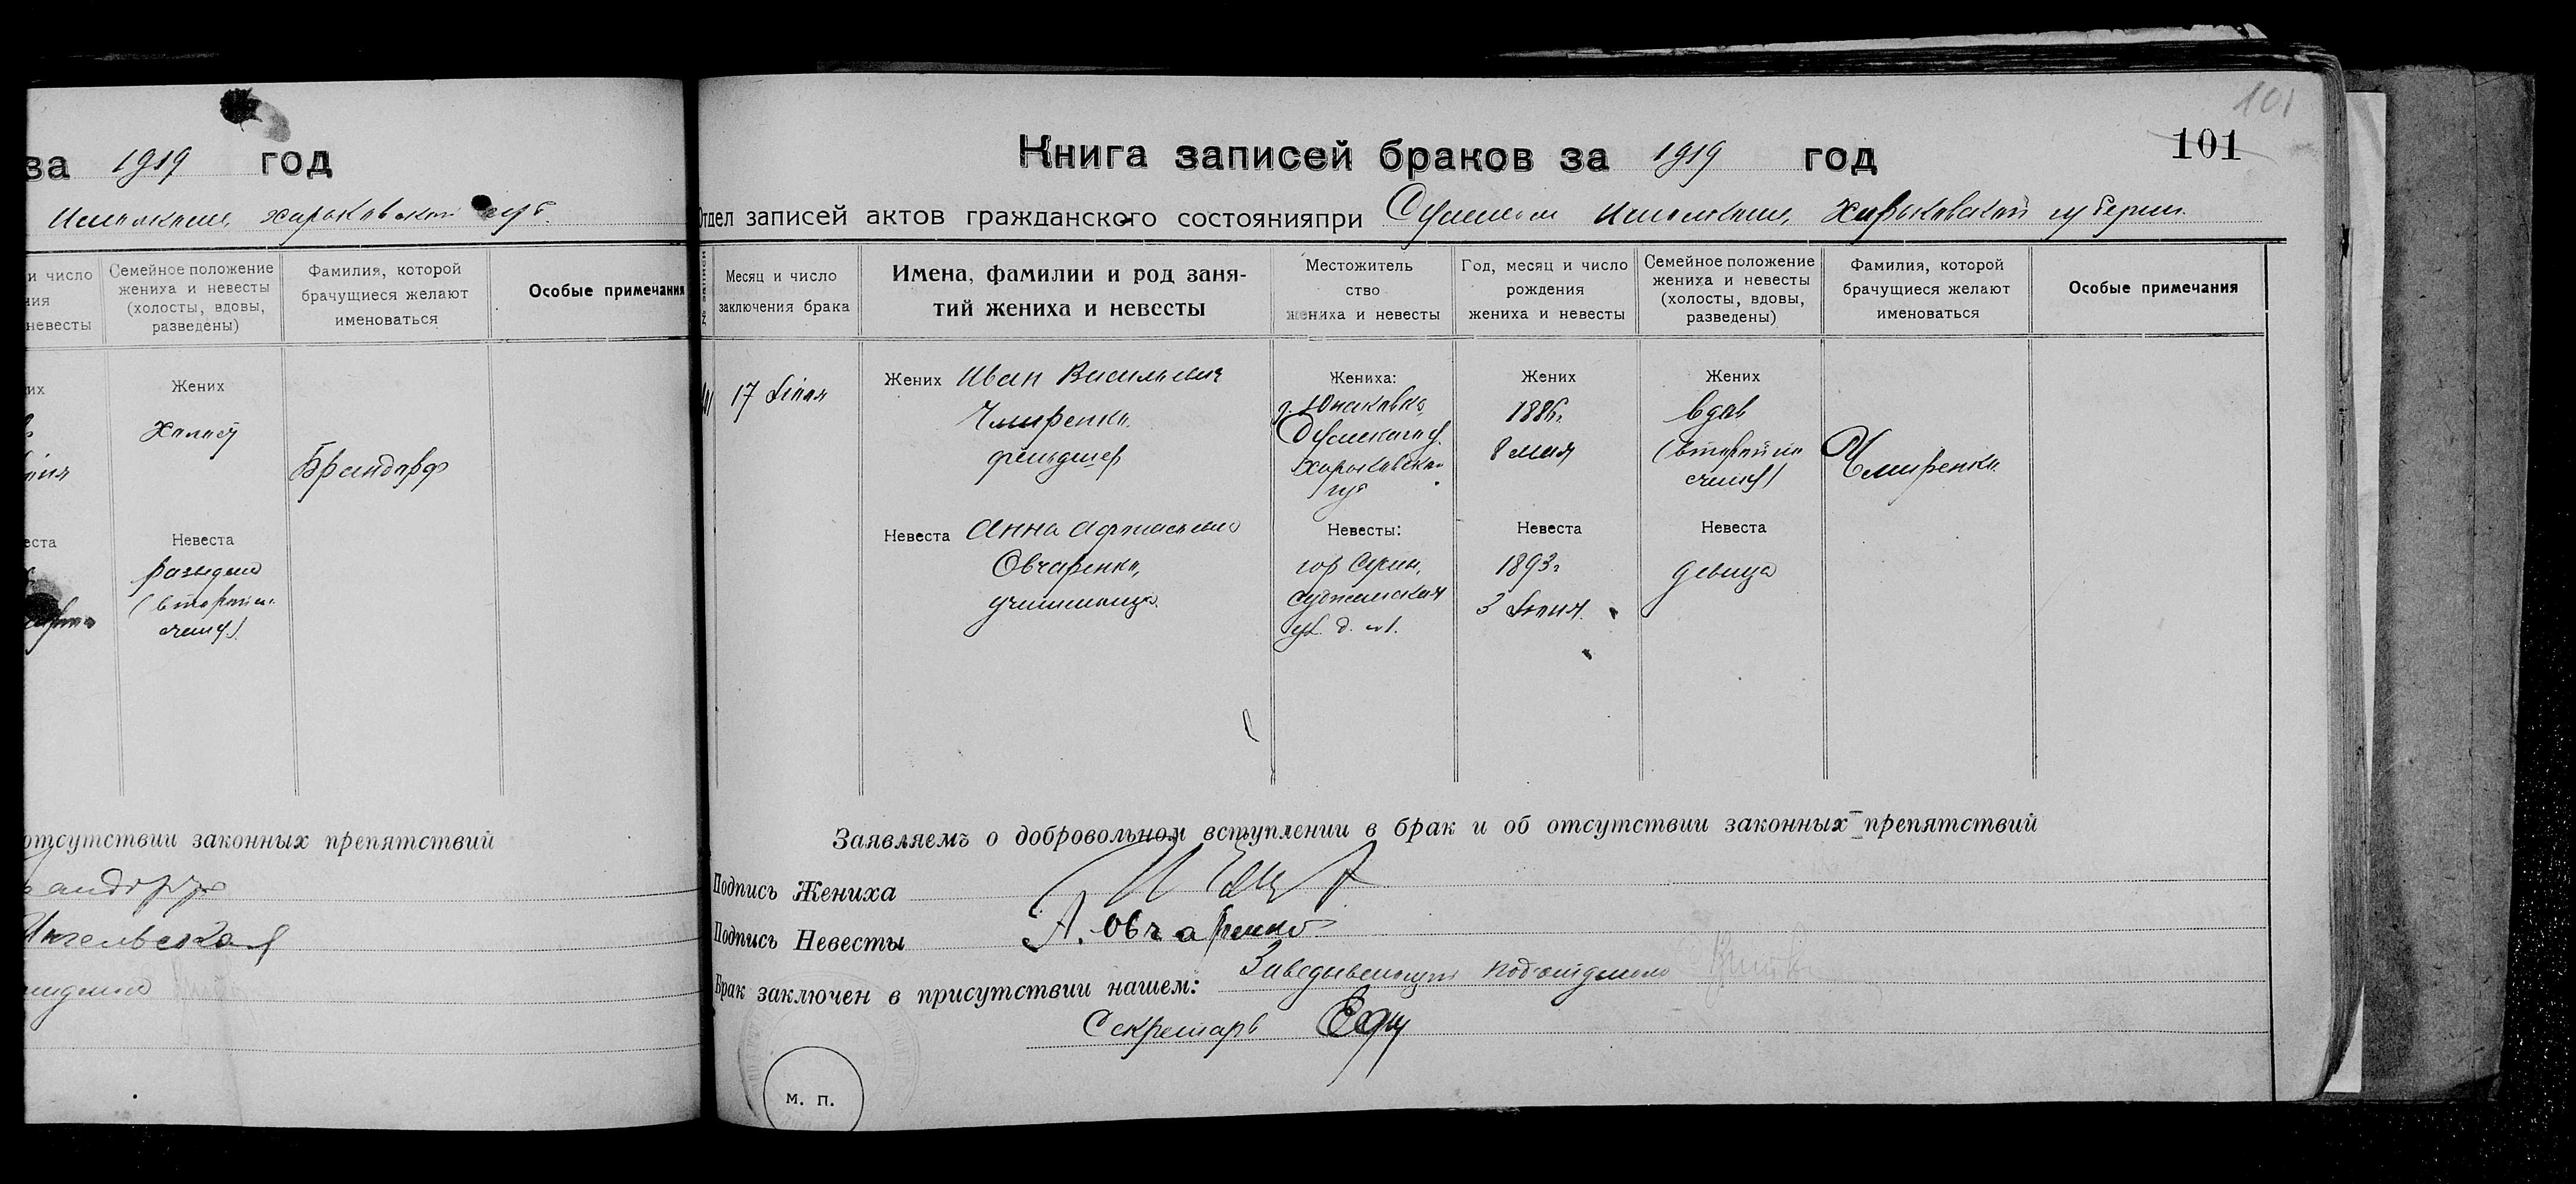 ва 1919 год
Исполкоме, Харьковской губ.
и число
ния
невесты
Семейное положение
жениха и невесты
(холосты, вдовы,
разведены)
Фамилия, которой
брачущиеся желают
именоваться
Особые примечания
их
Жених
Холост
Брандорф
еста
Невеста
разведена
(вторым
счит.)
отсутствии законных препятствий
андорф
Ангельская
101
101
Книга записей браков за 1919 год
Отдел записей актов гражданского состоянияпри Сумском Исполкоме, Харьковской губернии.
№ записи
Месяц и число
заключения брака
Имена, фамилии и род заня-
тий жениха и невесты
Местожитель
ство
жениха и невесты
Год, месяц и число
рождения
жениха и невесты
Семейное положение
жениха и невесты
(холосты, вдовы,
разведены)
Фамилия, которой
брачущиеся желают
именоваться
Особые примечания
101
17
Жених Иван Васильевич
Чмиренко,
фельдшер
Жениха:
с. Юнаковка,
Сумского у.
Харьковской
губ.
Жених
1886г.
8 мая
Жених
вдов
Чмиренко
Невеста Анна
Овчаренко,
учительница.
Невесты:
гор Сумы,
Суджанская
ул. д.
Невеста
1893г
3
Невеста
девица
Заявляемъ о добровольном вступлении в брак и об отсутствии законных препятствий
Подпись Жениха
Подпись Невесты А. Овчаренко
Брак заключен в присутствии нашем: Заведывающий подотделом
Секретарь
м. п.